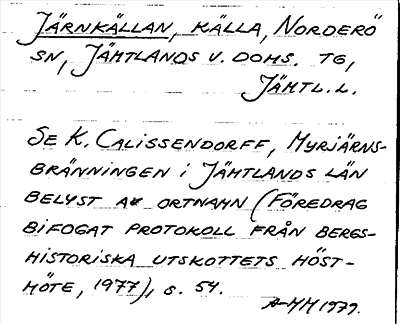 JÄRNKÄLLAN, KÄLLA, NORDERÖ
SN, JÄMTLANDS V. DOMS. TG,
JÄMTL. L.
SE K. CALISSENDORFF, MYRJÄRNS-
BRÄNNINGEN I JÄMTLANDS LÄN
BELYST AV ORTNAMN (FÖREDRAG
BIFOGAT PROTOKOLL FRÅN BERGS-
HISTORISKA UTSKOTTETS HÖST-
MÖTE, 1977), s. 54.
A-MH 1979.